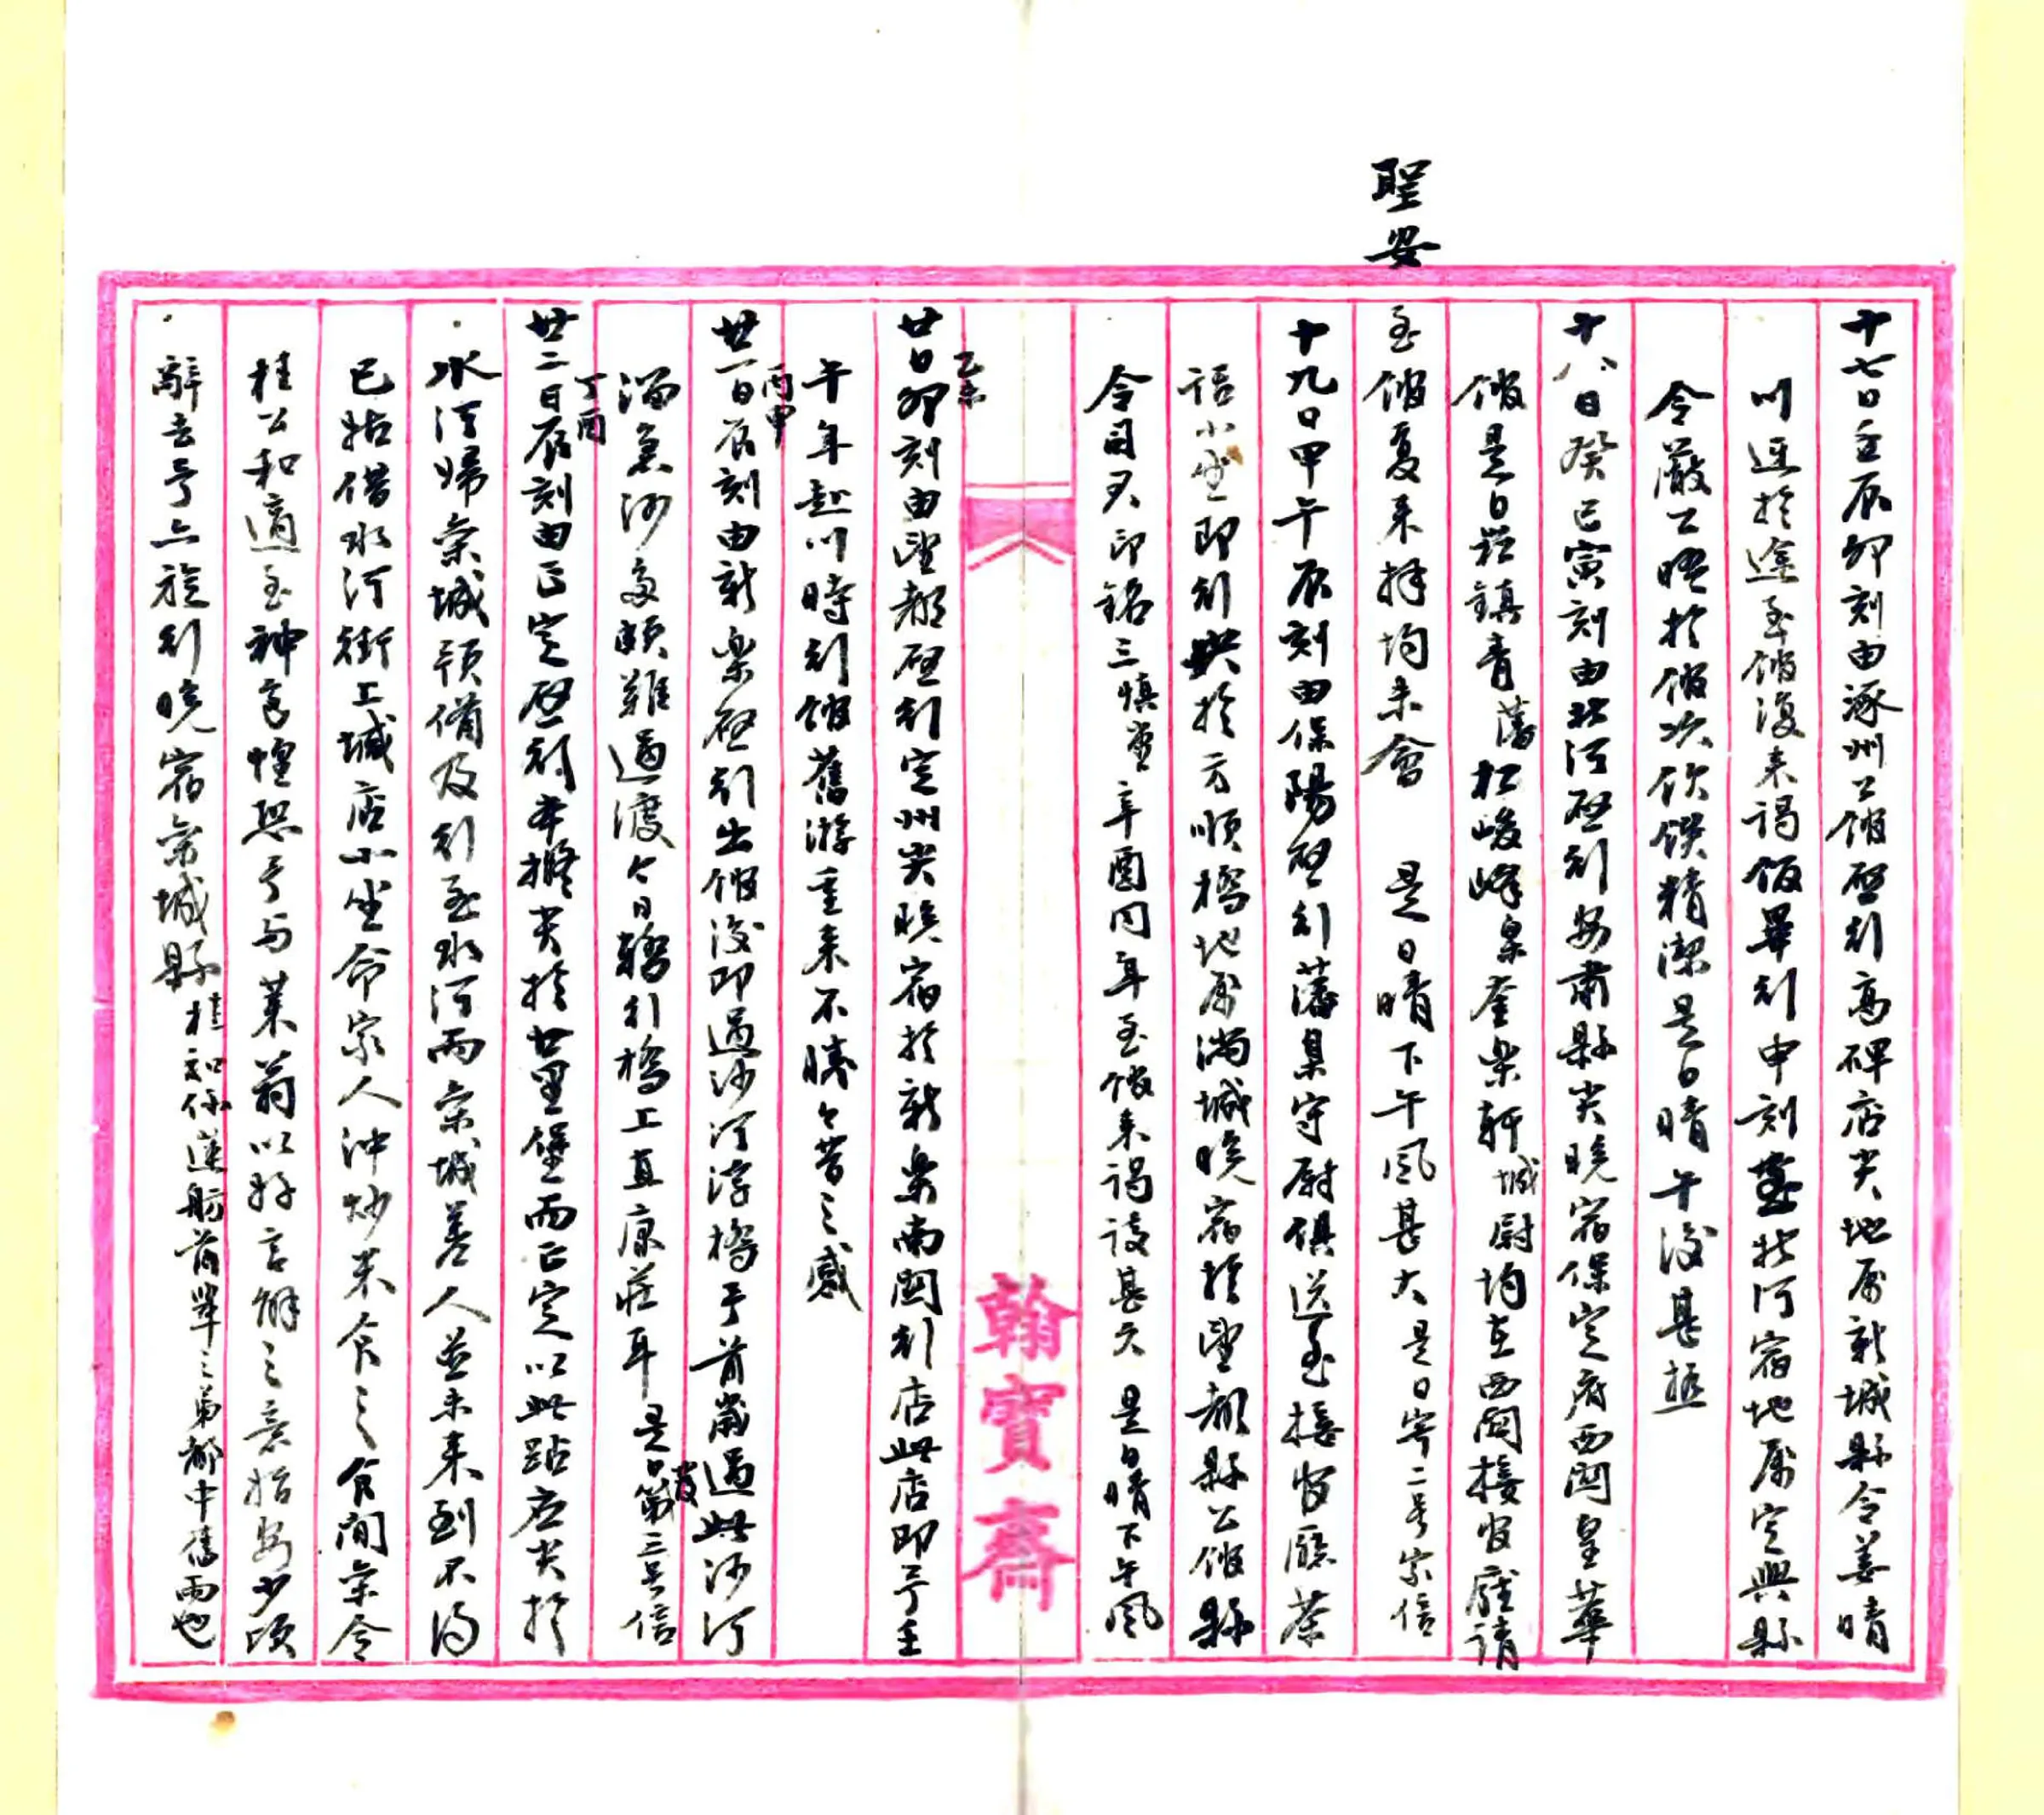 十七日壬辰卯刻由涿州公館啓行高碑店尖地屬新城縣令姜晴
川迎於途至館復来謁飯畢行申刻至北河宿地屬定興縣
令嚴公晤於館次飲饌精潔是日晴午後甚熱
十八日癸巳寅刻由北河啓行安肅縣尖晚宿保定府西関皇華
館是日崧鎮青藩松峻峰臬奎樂軒城尉均在西関接官廳請
聖安
至館复来拜均未會 是日晴下午風甚大是日寄二号家信
十九日甲午辰刻由保陽啓行藩臬守尉俱送至接官廳茶
話小坐即行尖於方順橋地屬滿城晚宿於望都縣公館縣
令 印銘三慎堂辛酉同年至館来謁談甚久 是日晴下午風
廿日乙未卯刻由望都啓行定州尖晚宿於新樂南関行店此店即予壬
午年起行時行館舊游重来不勝今昔之感
廿一日丙申辰刻由新樂啓行出館後即過沙河浮橋予前歲過此沙河
溜急沙多頗難過渡今日轎行橋上直康莊耳 是日發第三号信
廿二日丁酉辰刻由正定啓行本擬尖於廿里堡而正定以此跕应尖於
氷河歸欒城預備及行至氷河而欒城差人並未来到不得
已拈借氷河街上堿店小坐命家人沖炒米食之食間欒令
桂公和適至神色惶恐予与萊翁以好言解之意始安少頃
辭去予亦旋行晚宿欒城縣桂知係蓮舫前輩之弟都中舊雨也
翰寶齋